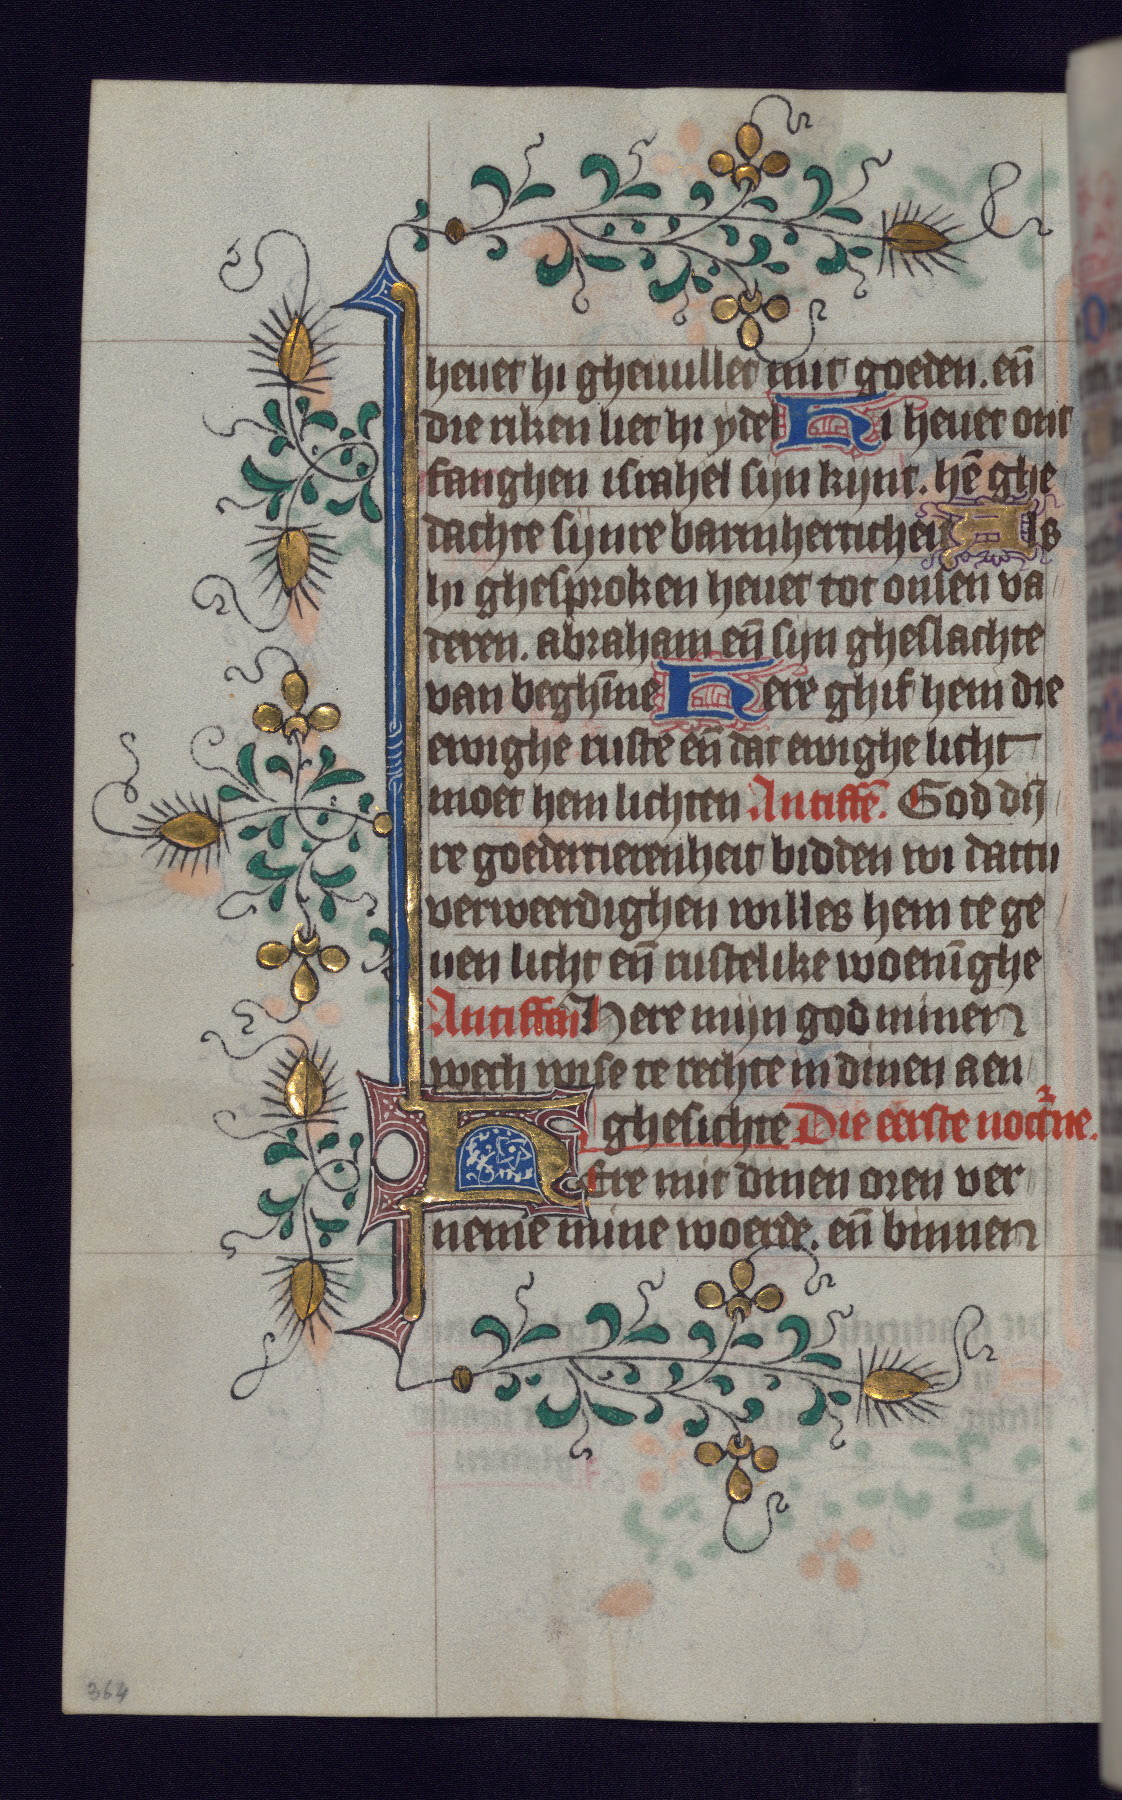 heuet hi gheuullet mit goeden. en̄
die riken liet hi ydel Hi heuet ont
fanghen israhel sijn kijnt. hē ghe
dachte sijnre barmherticheit Als
hi ghesproken heuet tot onsen va
deren. abraham en̄ sijn gheslachte
van beghīne Here ghif hem die
ewighe ruste en̄ dat ewighe licht
moet hem lichten Antiffē. God dij
re goedertierenheit bidden wi dattu
verweerdighen willes hem te ge
uen licht en̄ rustelike woenīghe
Antiffen Here mijn god minen
wech wise te rechte in dinen aen
ghesichte Die eerste noctne.
Here mit dinen oren ver
neme mine woerde. en̄ binnen
364